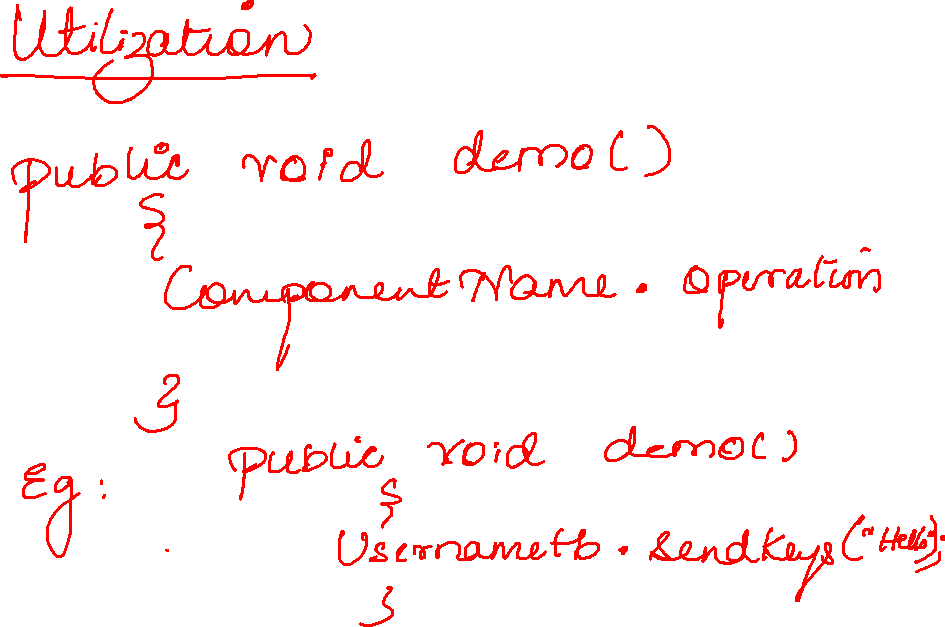 Utilization
public void demo()
{
ComponentName. operation
}
Eg: public void demo()
{
Usernametb. sendkeys("Hello");
}